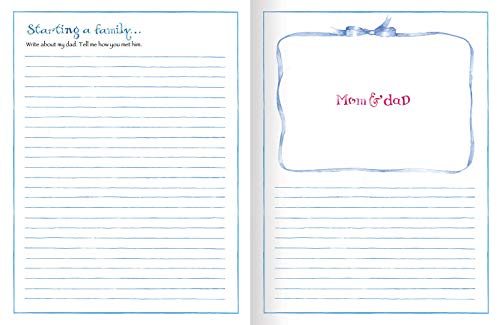 Starting a family...
Write about my dad. Tell me how you met him.
Mom & dad